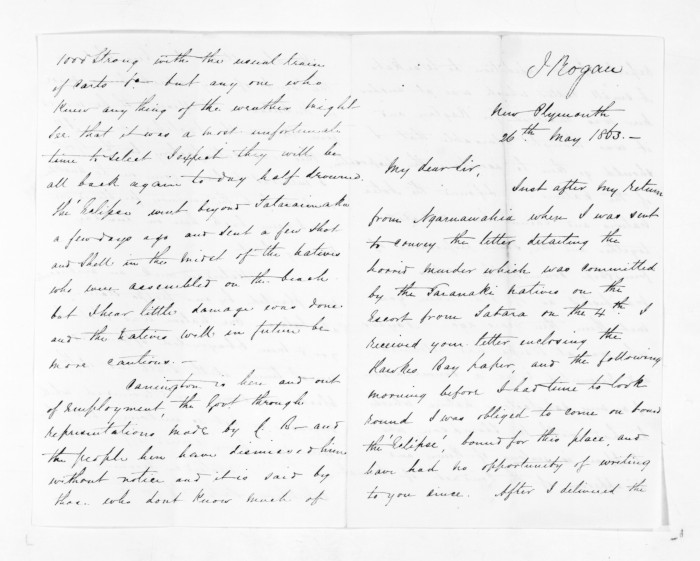 1000 Strong with the usual train
of Carts &c but any one who
knew anything of the weather might
see that it was a most unfortunate
time to select I expect they will be
all back again to day half drowned.
the 'Eclipse' went beyond Tataraimaka
a few days ago and sent a few shot
and shell in the midst of the natives
who were assembled on the beach
but I hear little damage was done
and the natives will in future be
more cautious. —
Carrington is here and out
of employment, the Govt through
representations made by C B— and
the people here have dismissed him
without notice and it is said by
those who dont know much of
J Rogan
New Plymouth
26th May 1863. —
My dear Sir,
Just after my return
from Ngaruawahia where I was sent
to convey the letter detailing the
horrid murder which was committed
by the Taranaki natives on the
Escort from Tatara on the 4th I
received your letter enclosing the
Hawkes Bay paper, and the following
morning before I had time to look
round I was obliged to come on board
the 'Eclipse', bound for this place, and
have had no opportunity of writing
to you since. After I delivered the